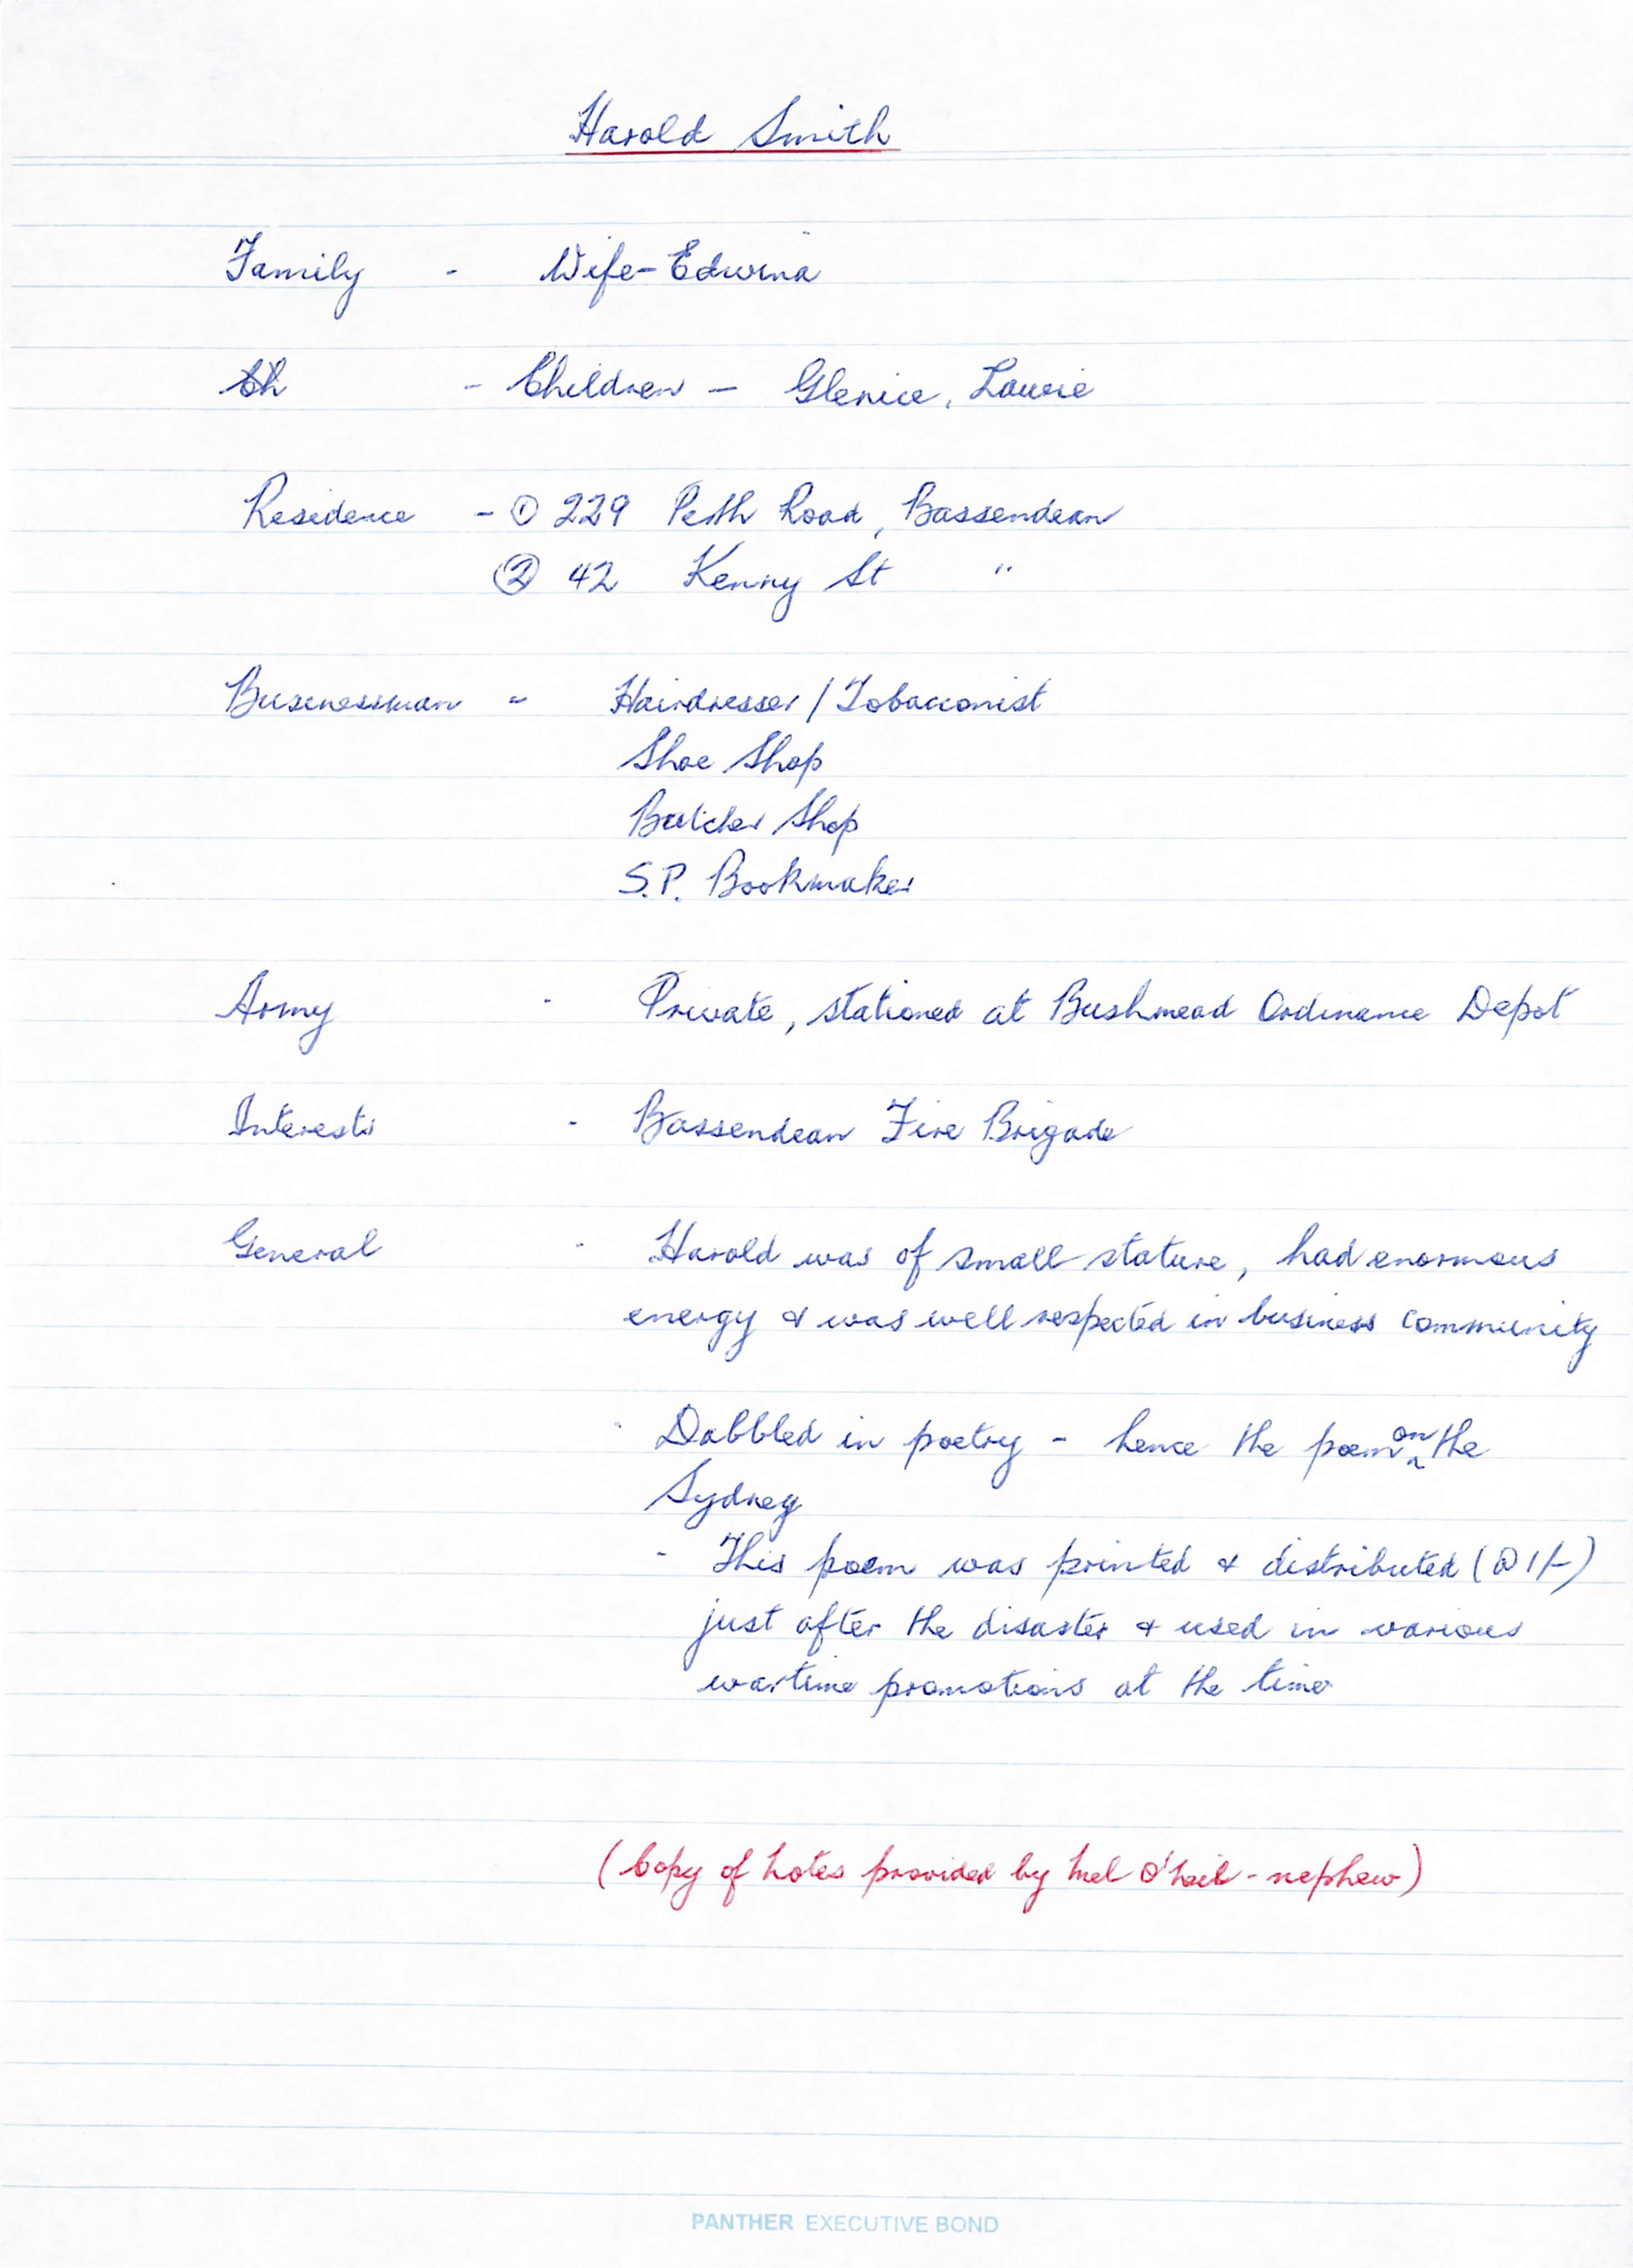 Harold Smith
Family - Wife - Edwina
Ch - Children - Glenice, Lawrie
Residence - ① 229 Perth Road, Bassendean
② 42 Kenny St "
Businessman - Hairdresser / Tobacconist
Shoe Shop
Butcher Shop
S.P. Bookmaker
Army - Private, stationed at Bushmead Ordinance Depot
Interests - Bassendean Fire Brigade
General - Harold was of small stature, had enormous
energy & was well respected in business community
- Dabbled in poetry - hence the poem on the
Sydney
- This poem was printed & distributed (@ 1/-)
just after the disaster & used in various
wartime promotions at the time
(Copy of notes provided by Mel O'Neil - nephew)
PANTHER EXECUTIVE BOND